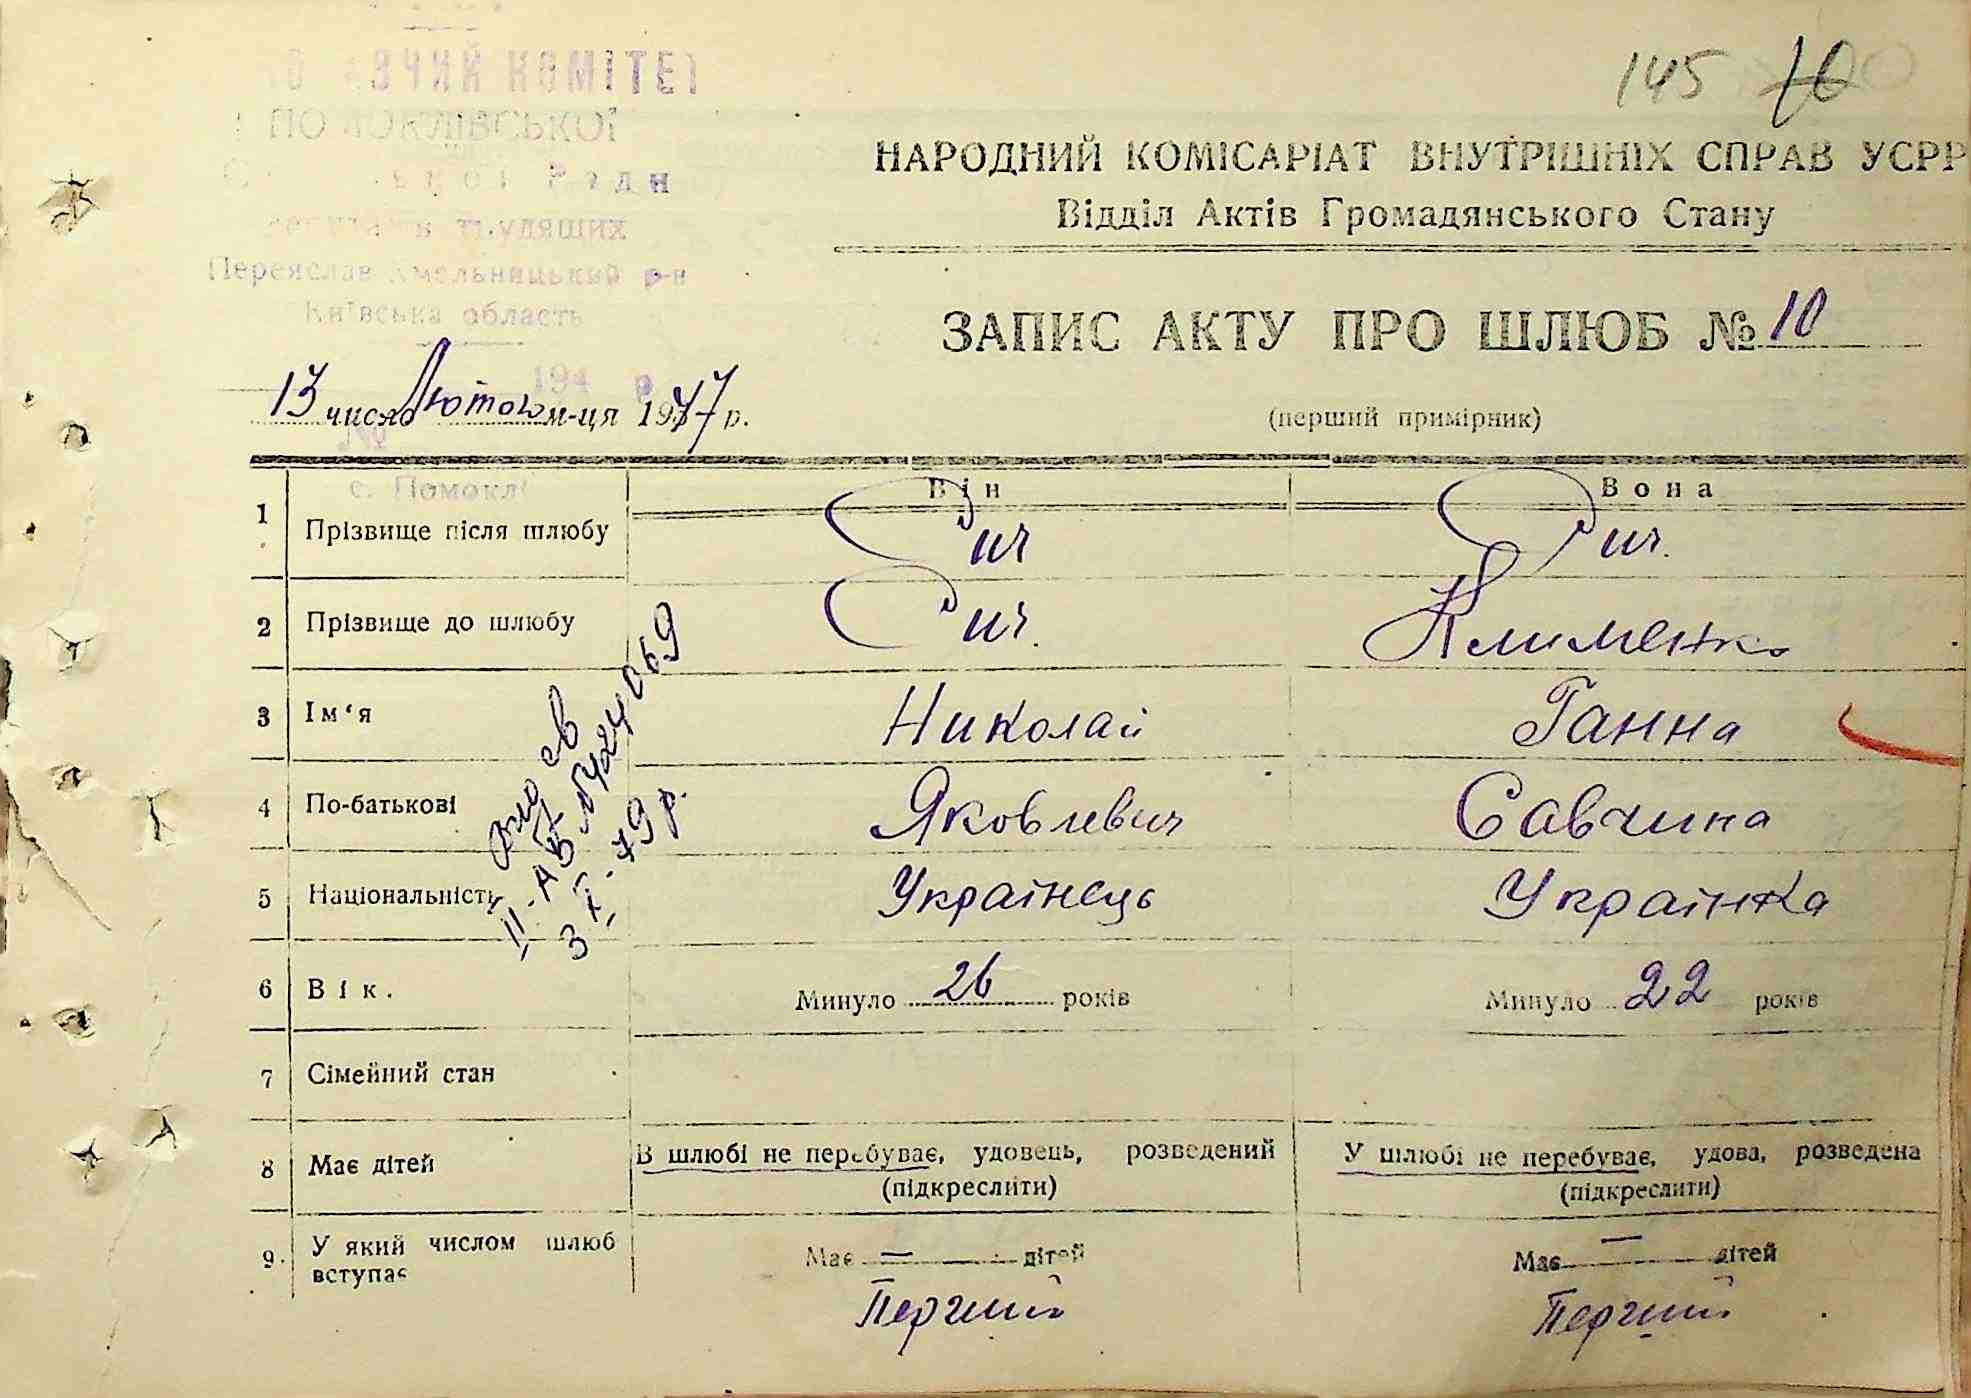 145 10
КОМІТЕТ
Ради
трудящих
Переяслав Хмельницький р-н
Київська область
194 р.
№
с. Помоклі
НАРОДНИЙ КОМІСАРІАТ ВНУТРІШНІХ СПРАВ УСРР
Відділ Актів Громадянського Стану
ЗАПИС АКТУ ПРО ШЛЮБ № 10
13 число Лютого м-ця 1947 р.
(перший примірник)
Він Вона
1 Прізвище після шлюбу Рич Рич.
2 Прізвище до шлюбу Рич. Клименко
3 Ім‘я Николай Ганна
4 По-батькові Яковлевич Савчина
5 Національність Українець Українка
6 Вік. Минуло 26 років Минуло 22 років
7 Сімейний стан
8 Має дітей В шлюбі не перебуває, удовець, розведений У шлюбі не перебуває, удова, розведена
(підкреслити) (підкреслити)
9. У який числом шлюб вступає Має — дітей Має — дітей
Перший Перший
св
II-АБ № 424069
3 X-79 р.